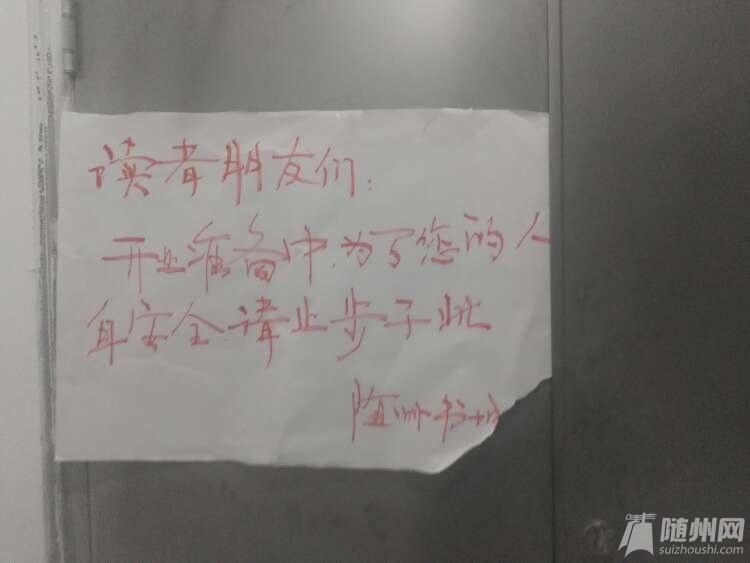 读者朋友们:
开业准备中,为了您的人
身安全请止步于此
随州书城
随州网
suizhoushi.com